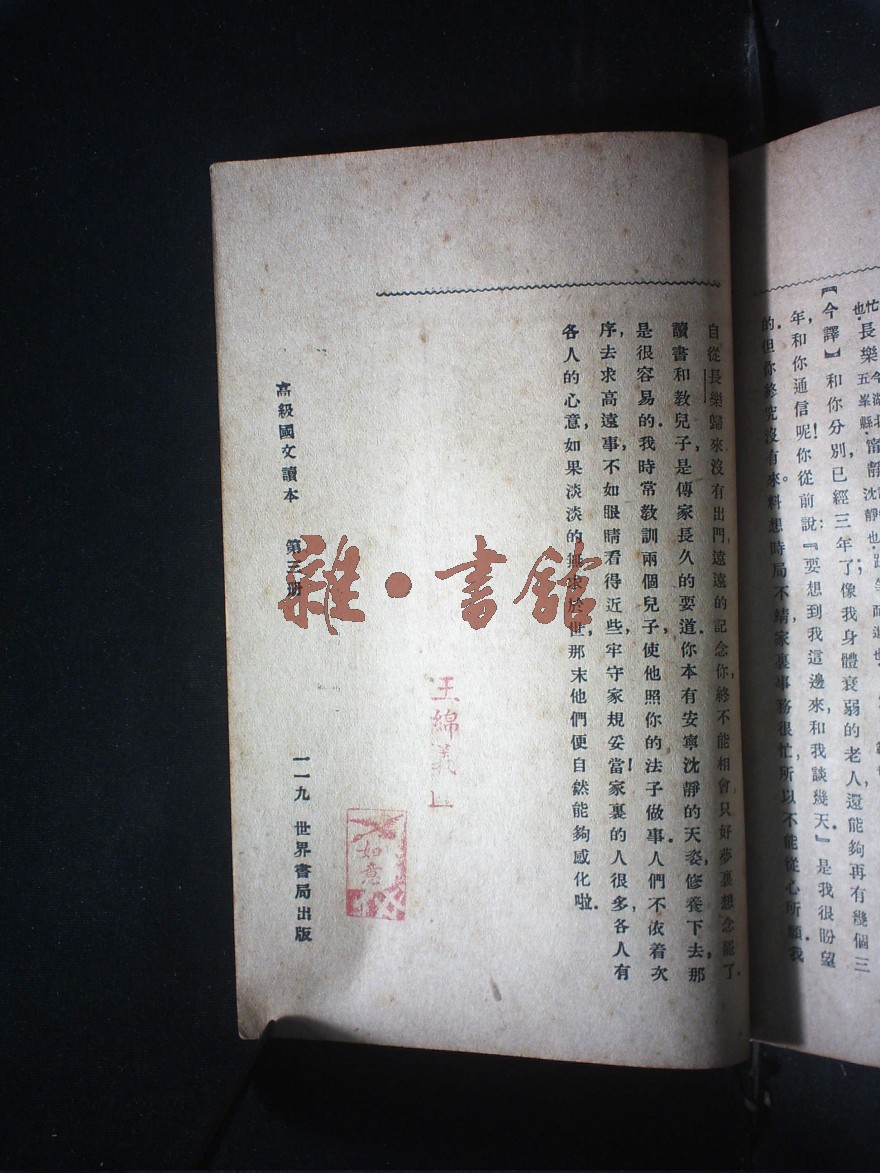 忙
也.長樂今湖北
五峯縣.甯靜
沈靜也.
『今譯』和你分別,已經三年了;像我身體衰弱的老人,還能夠再有幾個三
年,和你通信呢!你從前說:『要想到我這邊來,和我談幾天.』是我很盼望
的.但你終究沒有來。料想時局不靖,家裏事務很忙,所以不能從心所願.我
自從長樂歸來,沒有出門,遠遠的記念你,終不能相會,只好夢裏想念罷了.
讀書和教兒子,是傳家長久的要道.你本有安寧沈靜的天姿,修養下去,那
是很容易的.我時常教訓兩個兒子,使他照你的法子做事.人們不依着次
序,去求高遠事,不如眼睛看得近些,牢守家規妥當!家裏的人很多,各人有
各人的心意,如果淡淡的無求於世,那末他們便自然能夠感化啦.
高級國文讀本 第三册
一一九 世界書局出版
王綿義
如意
雜·書館